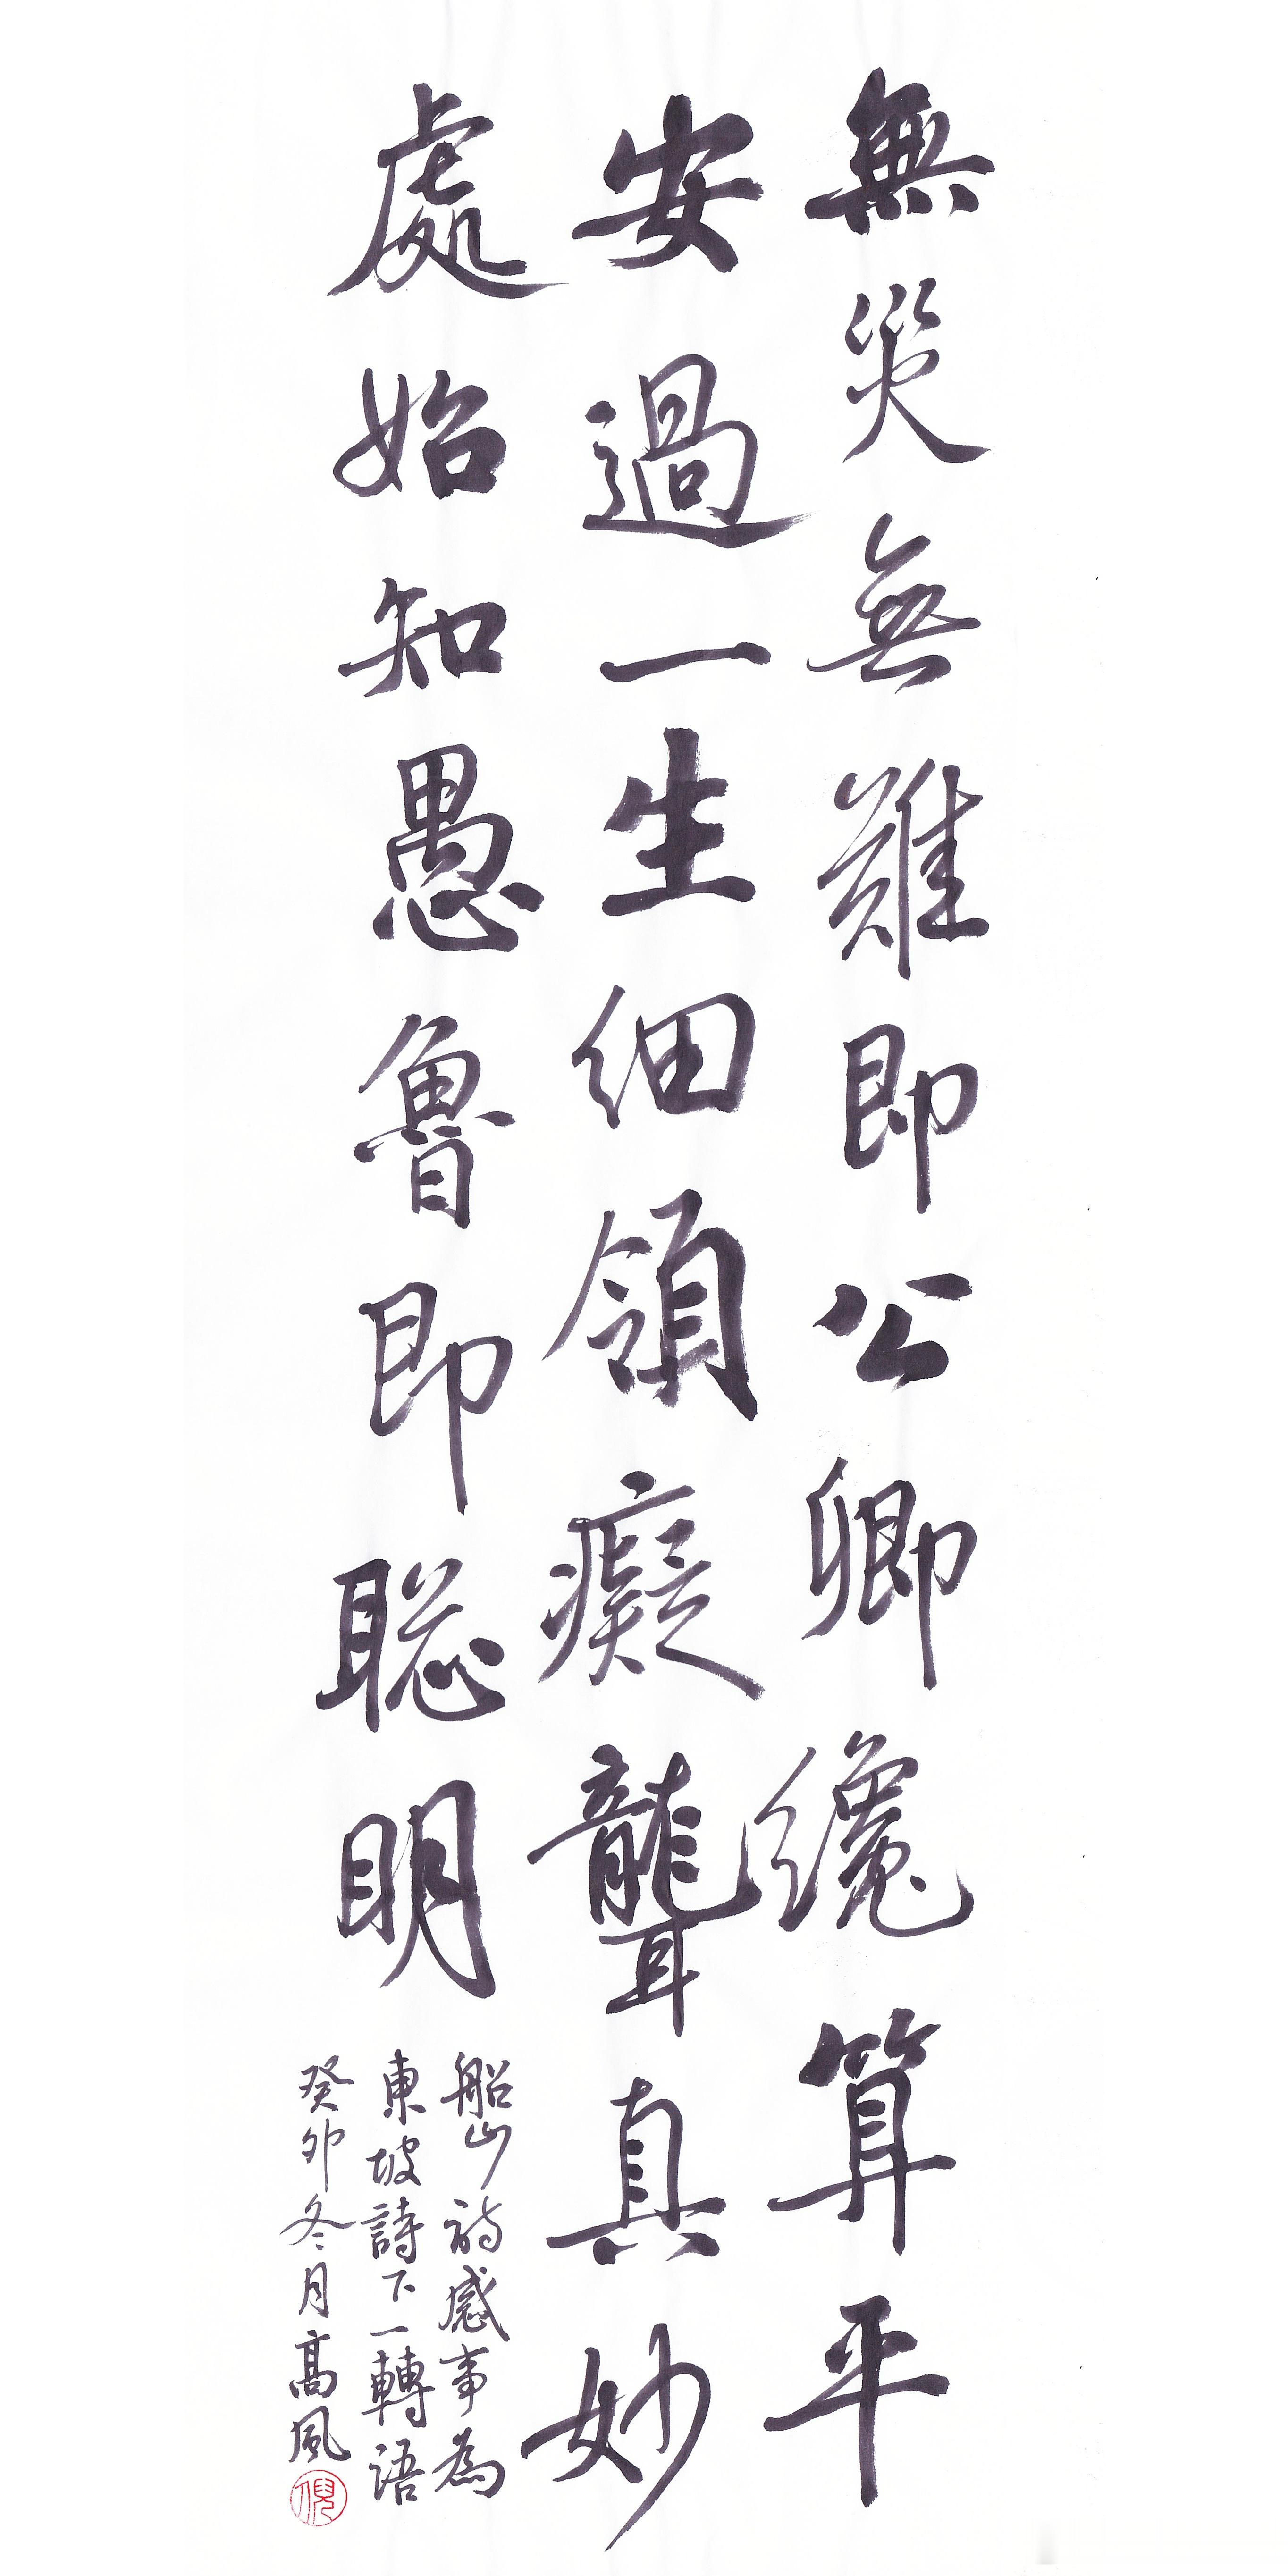 無災無難即公卿纔算平
安過一生细領癡聾真妙
處始知愚魯即聡明
船山詩感事為
東坡詩下一轉語
癸卯冬月高風
倪